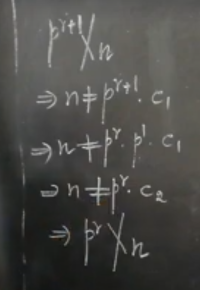 p^{r+1} ∤ n
⇒ n ≠ p^{r+1} · c₁
⇒ n ≠ p^r · p^1 · c₁
⇒ n ≠ p^r · c₂
⇒ p^r ∤ n